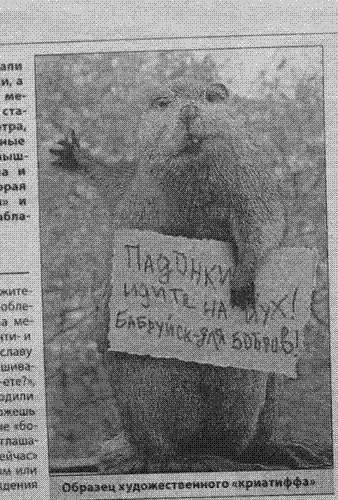 али
и, а
ме-
ста-
тра,
ные
ыш-
а и
орая
» и
абла-
жите-
обле-
а ме-
нти- и
славу
шива-
-ете?»,
одили
ожешь
не «бо-
глаша-
ейчас»
ым или
ждения
ПАДОНКИ
ИДИТЕ НА ЙУХ!
БАБРУЙСК-ДЛЯ БОБРОВ!
Образец художественного «криатиффа»